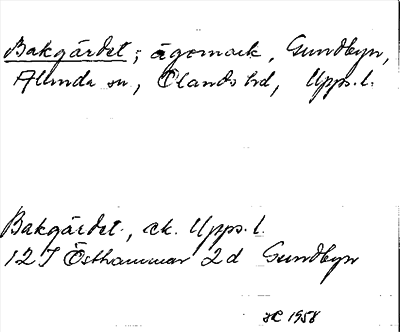 Bakgärdet; ägomark, Gundbyn,
Alunda sn, Ölands hd, Upps. l.
Bakgärdet, ek. Upps. l.
12 I Östhammar 2 d Gundbyn
1958